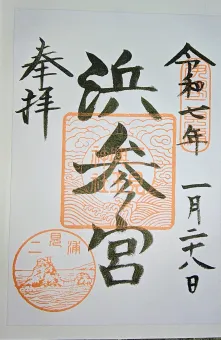 令和七年
一月二十八日
浜参宮
奉拝
二見浦